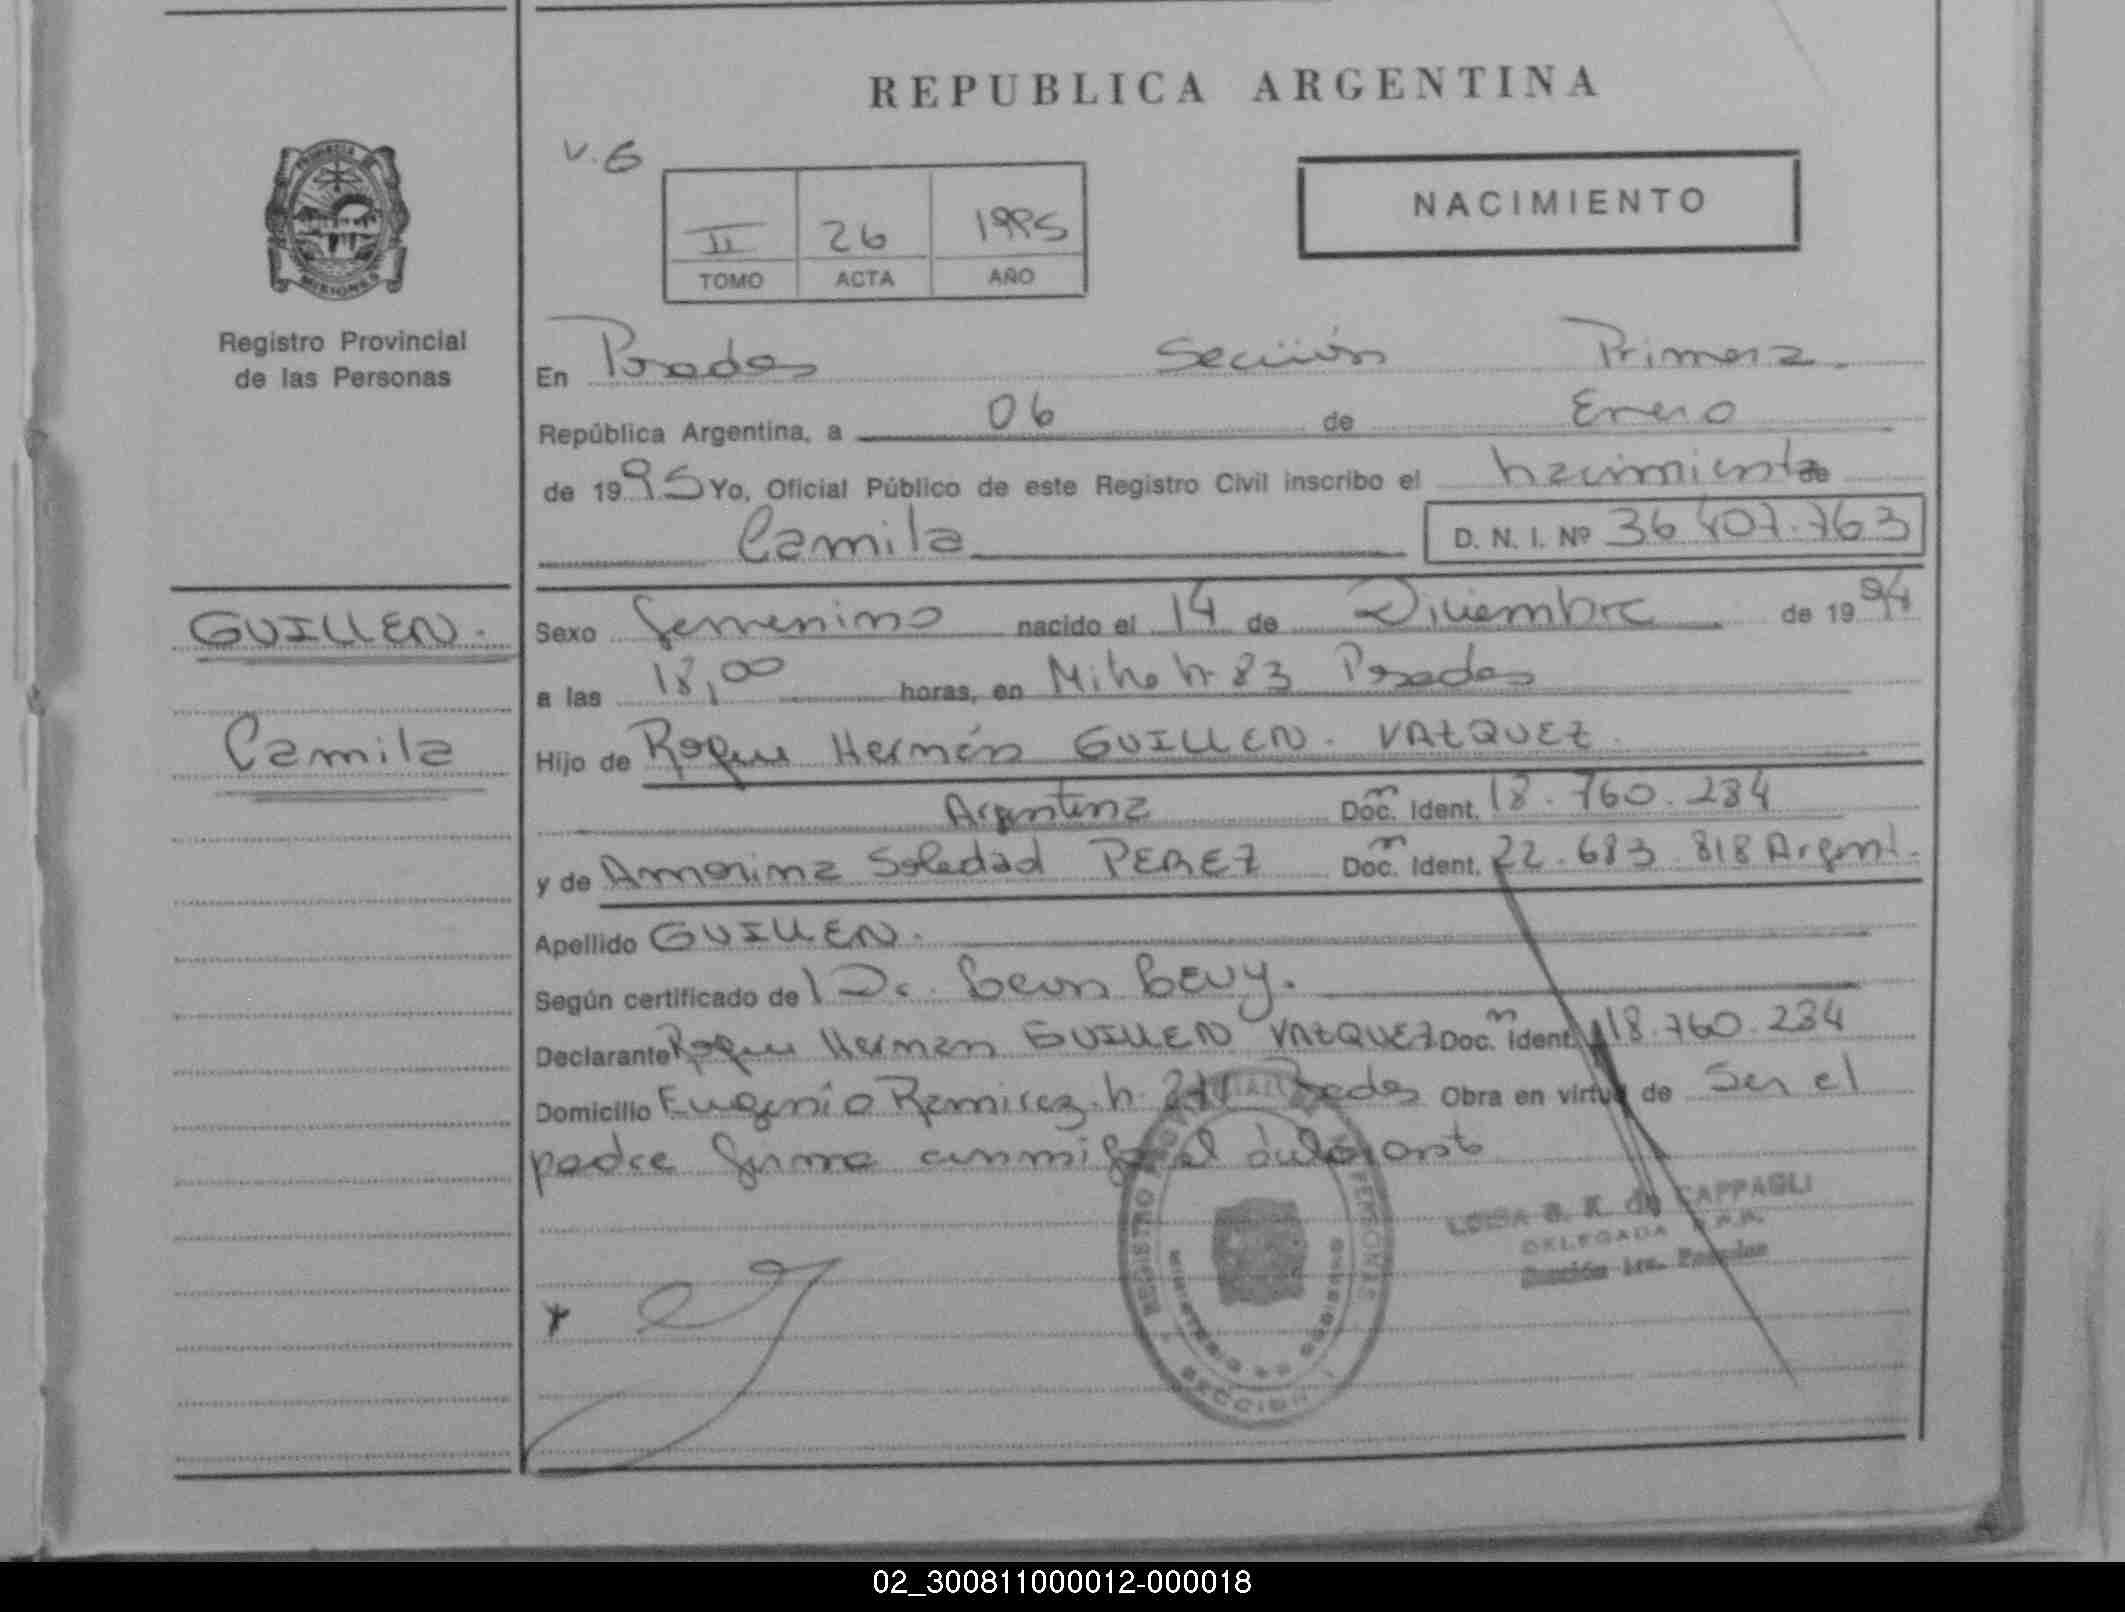 REPUBLICA ARGENTINA
V.G
II 26 1995
TOMO ACTA AÑO
NACIMIENTO
PROVINCIA DE MISIONES
Registro Provincial
de las Personas
En Posadas Sección Primera
República Argentina, a 06 de Enero
de 1995 Yo, Oficial Público de este Registro Civil inscribo el nacimiento de
Camila D. N. I. Nº 36.407.763
GUILLEN.
Camila
Sexo femenino nacido el 14 de Diciembre de 1994
a las 18,00 horas, en Mitre n 83 Posadas
Hijo de Roque Hernán GUILLEN. VAZQUEZ
Argentina Doc. Ident. 18.760.284
y de Soledad PEREZ Doc. Ident. 22.683.818 Argent.
Apellido GUILLEN.
Según certificado de Dr. Leon Levy.
Declarante Roque Hernan GUILLEN VAZQUEZ Doc. Ident. 18.760.284
Domicilio Eugenio Ramirez n Posadas Obra en virtud de Ser el
padre firma conmigo el declarante
REGISTRO PROVINCIAL DE LAS PERSONAS
MINISTERIO DE GOBIERNO
SECCION 1
LUISA G. K. de CAPPAGLI
DELEGADA R.P.P.
Sección 1ra. Posadas
02_300811000012-000018